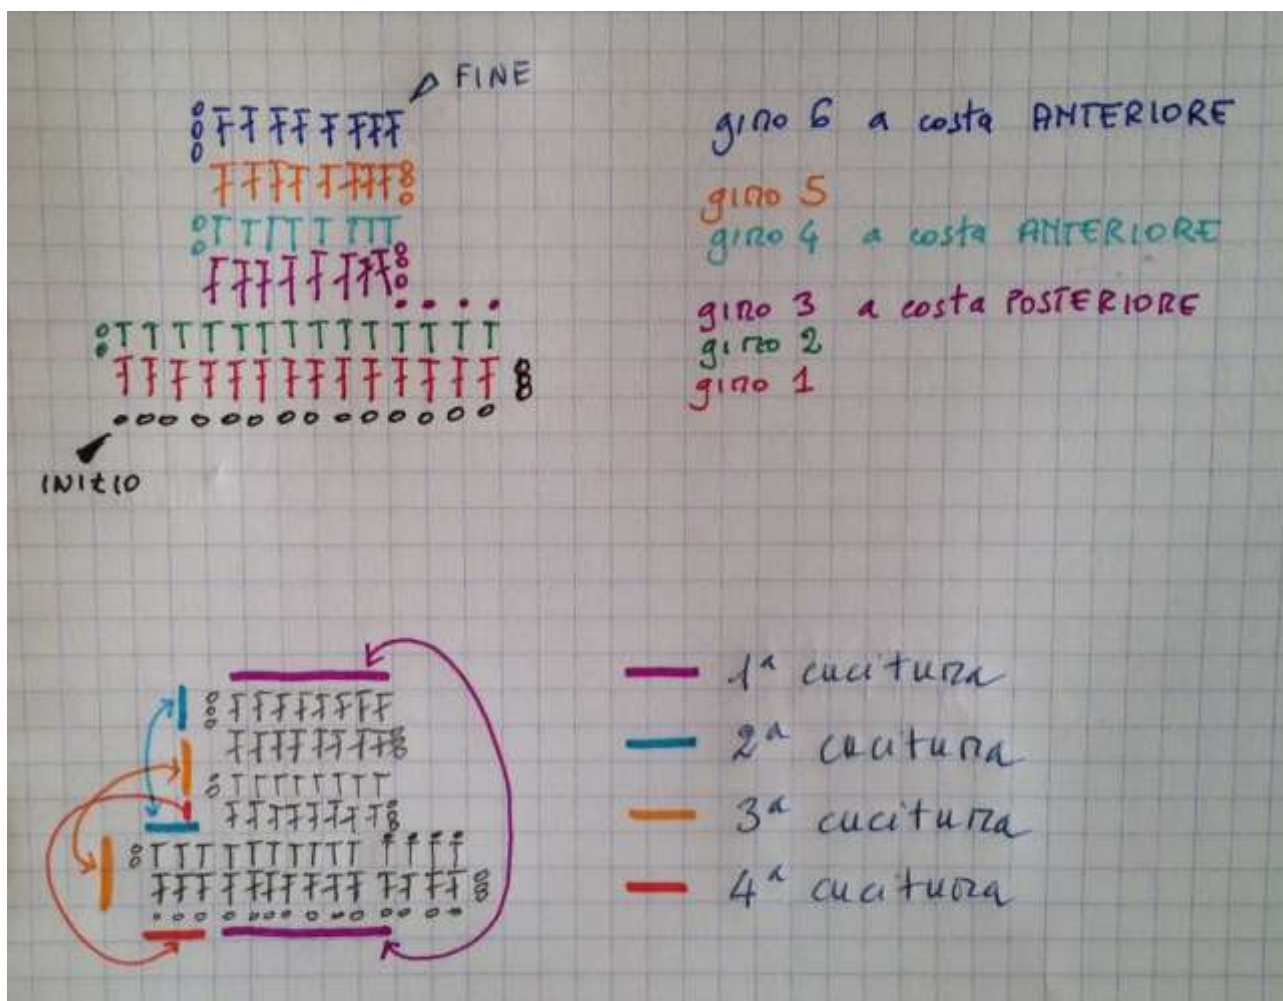 FINE
giro 6 a costa ANTERIORE
giro 5
giro 4 a costa ANTERIORE
giro 3 a costa POSTERIORE
giro 2
giro 1
INItIO
1ª cucitura
2ª cucitura
3ª cucitura
4ª cucitura